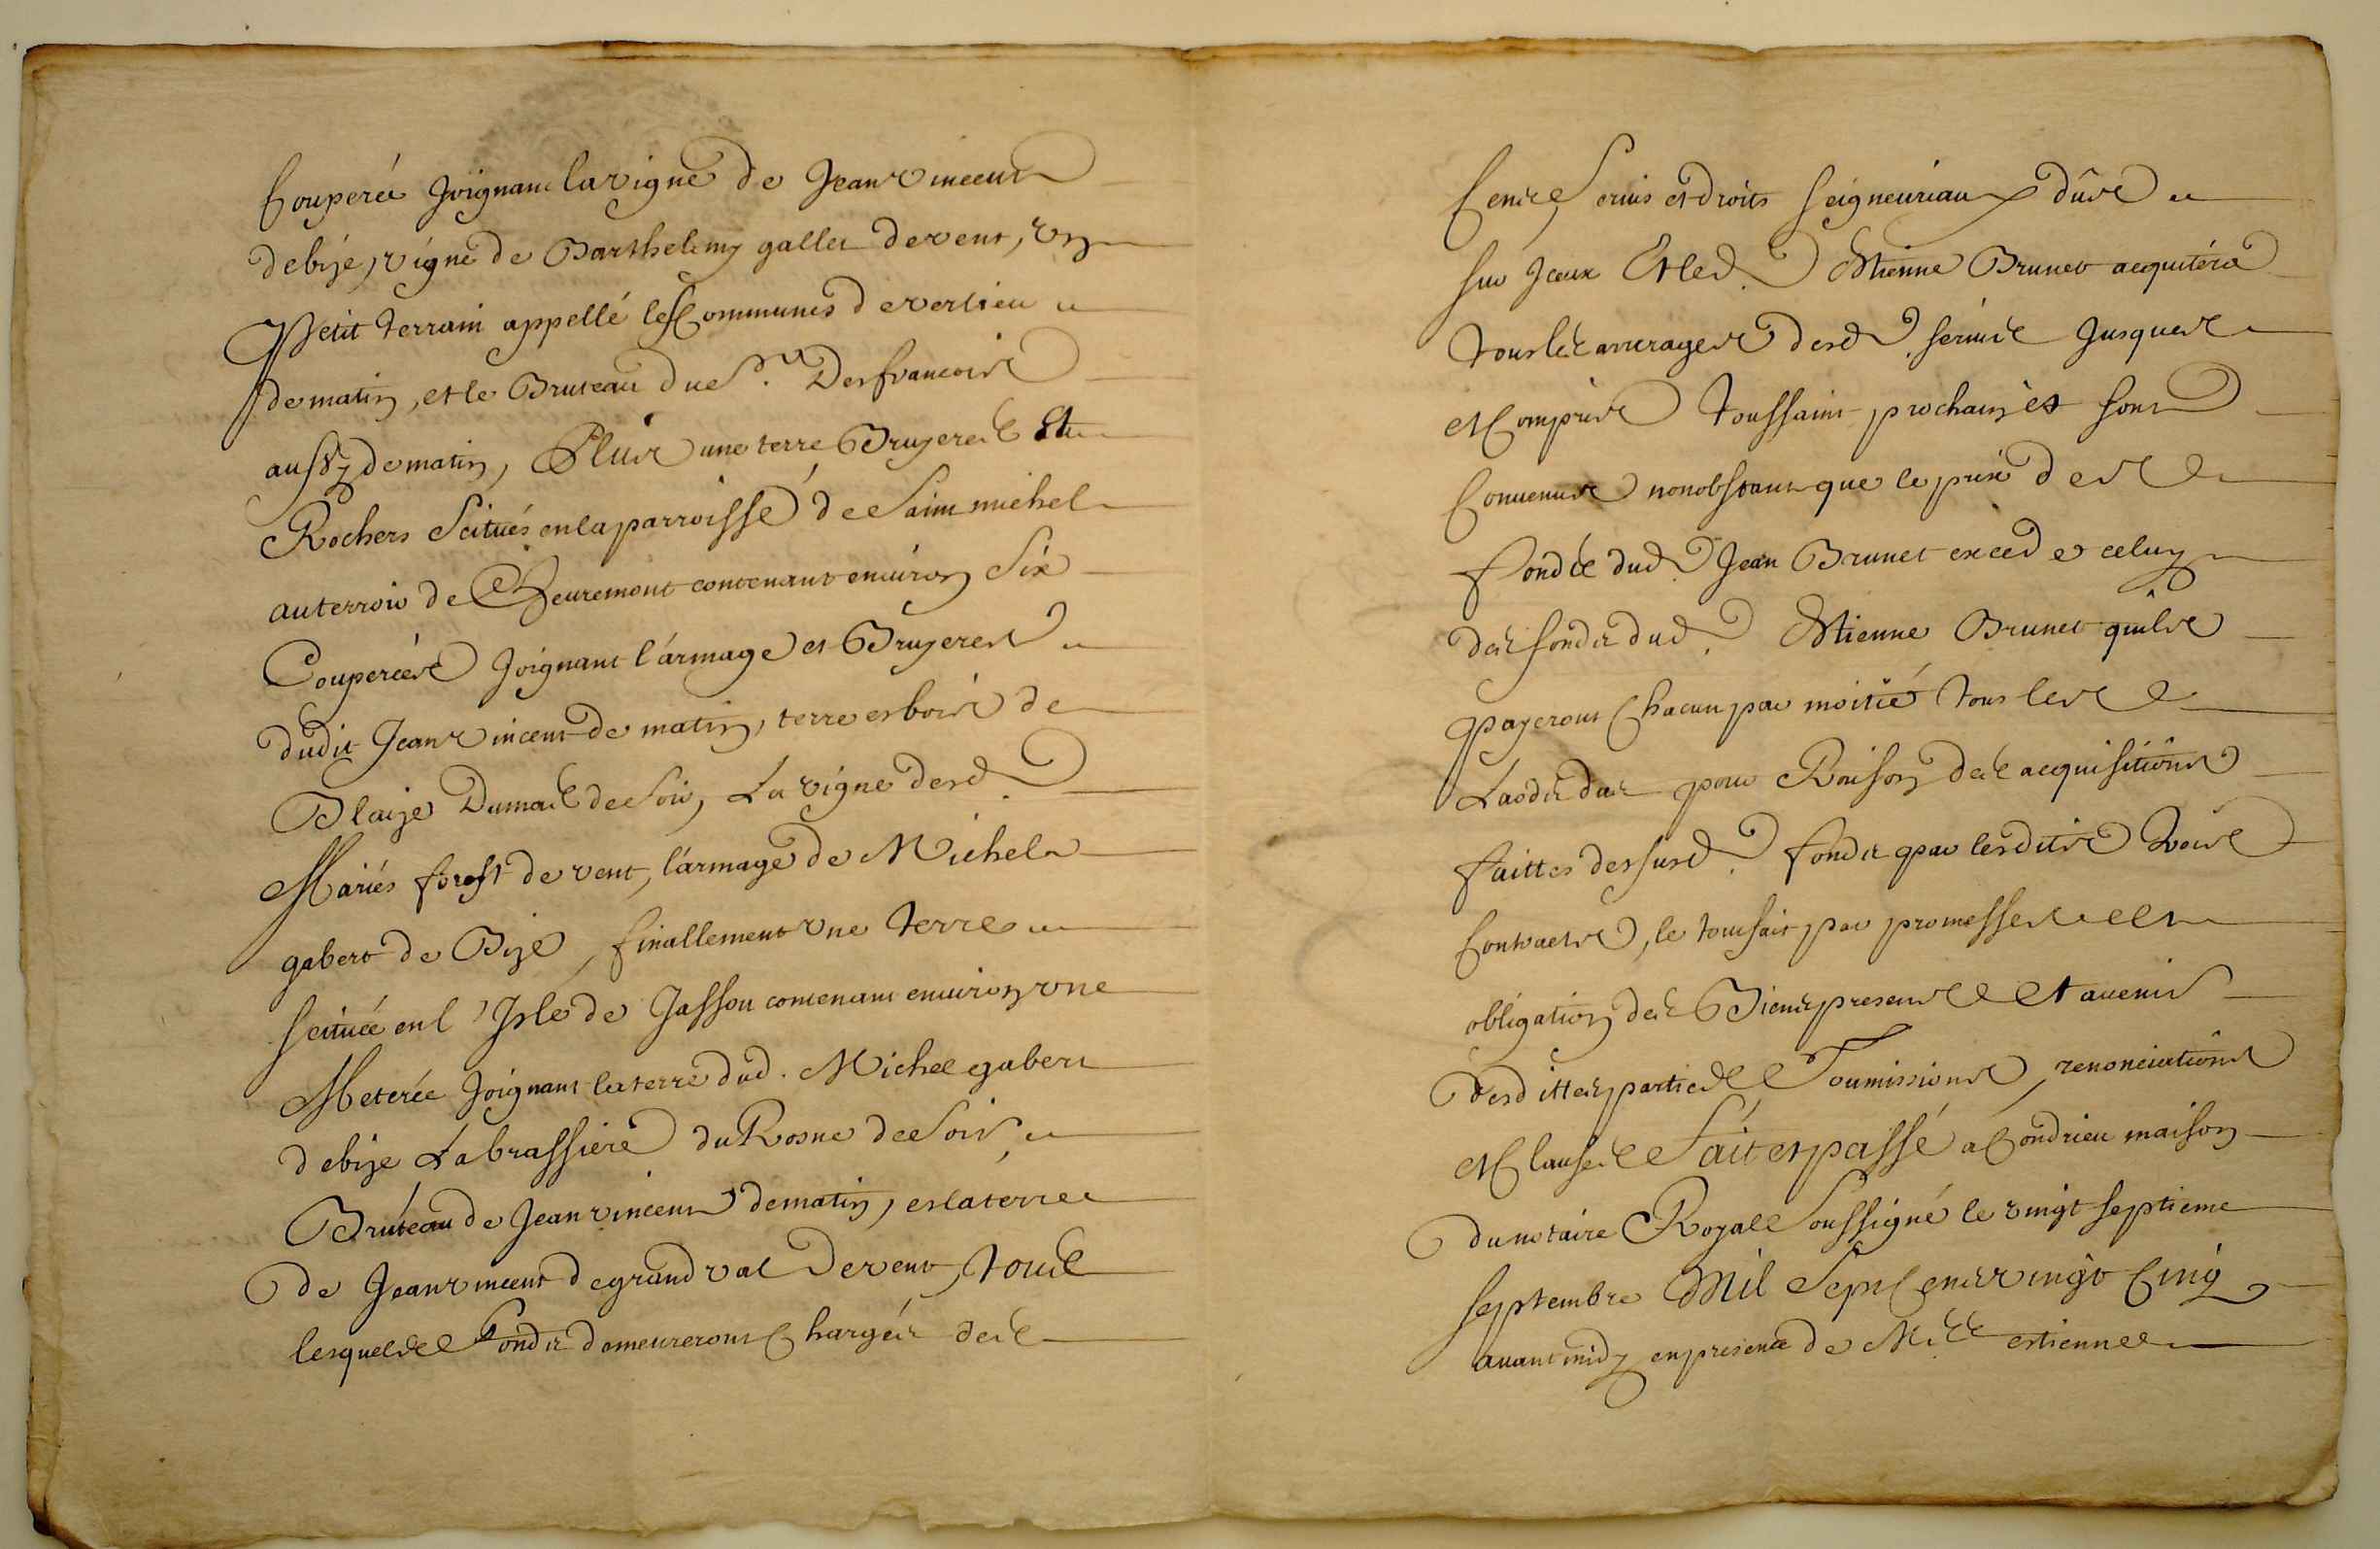 Couperée Joignant la vigne de Jean Vincent
de bize, vigne de Barthelemy gallet de vent, un
Petit terrain appellé les Communes de verlieu
de matin, et le Bruteau du Sr. Desfrancois
aussy de matin, Plus une terre Bruyeres Et
Rochers Scitués en la parroisse de Saint michel
au terroir de Cheuremont contenant enuiron Six
Couperées Joignant l'ármage et Bruyeres
dudit Jean Vincent de matin, terre et bois de
Blaize Dumas de Soir, La vigne desd.
Mariés forest de vent, l'armage de Michel
gabert de Bize, finallement une terre
scituée en l'Isle de Jasson contenant enuiron une
Meterée Joignant la terre dud. Michel gabert
de bize La brassiere du Rosne de Soir,
Bruteau de Jean vincent de matin, et la terre
de Jean vincent de grand val de vent, tous
lesquels fonds demeureront Chargés des
Cens Seruis et droits Seigneuriaux dûs
sur Iceux Et led. Etienne Brunet acquitéra
tous les arrerages desd. seruis Jusques
et Compris toussaint prochain et sont
Conuenus nonobstant que le prix des
fonds dud. Jean Brunet excede celuy
des fonds dud. Etienne Brunet qu'ils
payeront Chacun par moitié tous les
Laods dus pour Raison des acquisitions
faittes desusd. fonds par lesdits Trois
Contracts, le tout fait par promesses et
obligation des Biens presens Et auenir
desdittes parties Soumissions, renonciations
et Clauses fait et passé a Condrieu maison
du notaire Royal Soussigné le vingt septieme
septembre Mil Sept Cens vingt Cinq
auant midy en presence de Mes. estienne